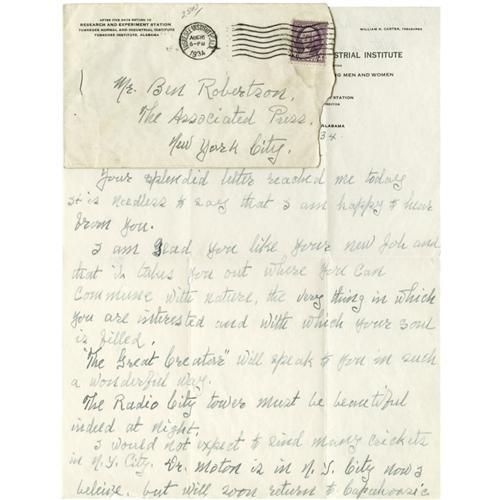 AFTER FIVE DAYS RETURN TO
RESEARCH AND EXPERIMENT STATION
TUSKEGEE NORMAL AND INDUSTRIAL INSTITUTE
TUSKEGEE INSTITUTE, ALABAMA
AUG 16
6-PM
1934
WILLIAM H. CARTER, TREASURER
USTRIAL INSTITUTE
NG MEN AND WOMEN
STATION
ALABAMA
34.
Mr. Ben Robertson,
The Associated Press.
New York City.
Your splendid letter reached me today
it is needless to say that I am happy to hear
from you.
I am glad you like your new job and
that it takes you out where you can
commune with nature, the very thing in which
you are interested and with which your soul
is filled.
"The Great Creator" will speak to you in such
a wonderful way.
The Radio City tower must be beautiful
indeed at night.
I would not expect to find many crickets
in N.Y. City. Dr. Moton is in N.Y. City now I
beleive, but will soon return to